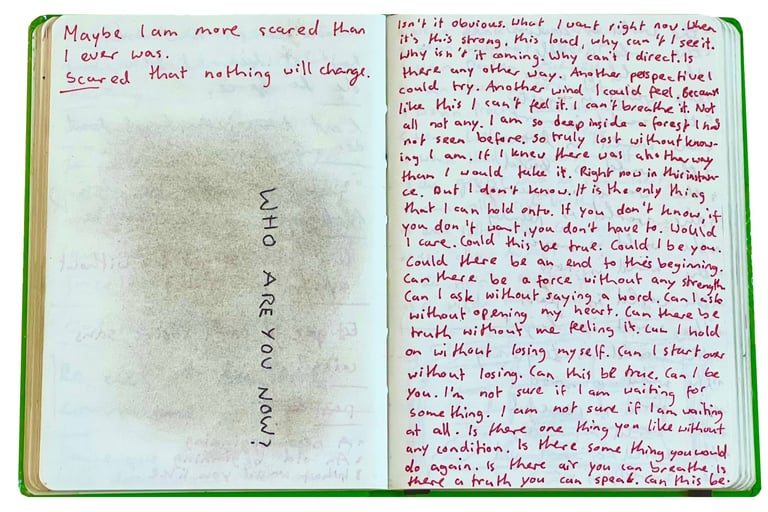 Maybe I am more scared than
I ever was.
Scared that nothing will change.
WHO ARE YOU NOW?
Isn't it obvious. What I want right now. When
it's this strong, this loud, why can't I see it.
Why isn't it coming. Why can't I direct. Is
there any other way. Another perspective I
could try. Another wind I could feel. Because
like this I can't feel it. I can't breathe it. Not
all not any. I am so deep inside a forest I had
not seen before. So truly lost without know-
ing I am. If I knew there was another way
than I would take it. Right now in this instan-
ce. But I don't know. It is the only thing
that I can hold onto. If you don't know, if
you don't want, you don't have to. Would
I care. Could this be true. Could I be you.
Could there be an end to this beginning.
Can there be a force without any strength
Can I ask without saying a word. Can I ask
without opening my heart. Can there be
truth without me feeling it. Can I hold
on without losing myself. Can I start over
without losing. Can this be true. Can I be
you. I'm not sure if I am waiting for
something. I am not sure if I am waiting
at all. Is there one thing you like without
any condition. Is there something you would
do again. Is there air you can breathe. Is
there a truth you can speak. Can this be.